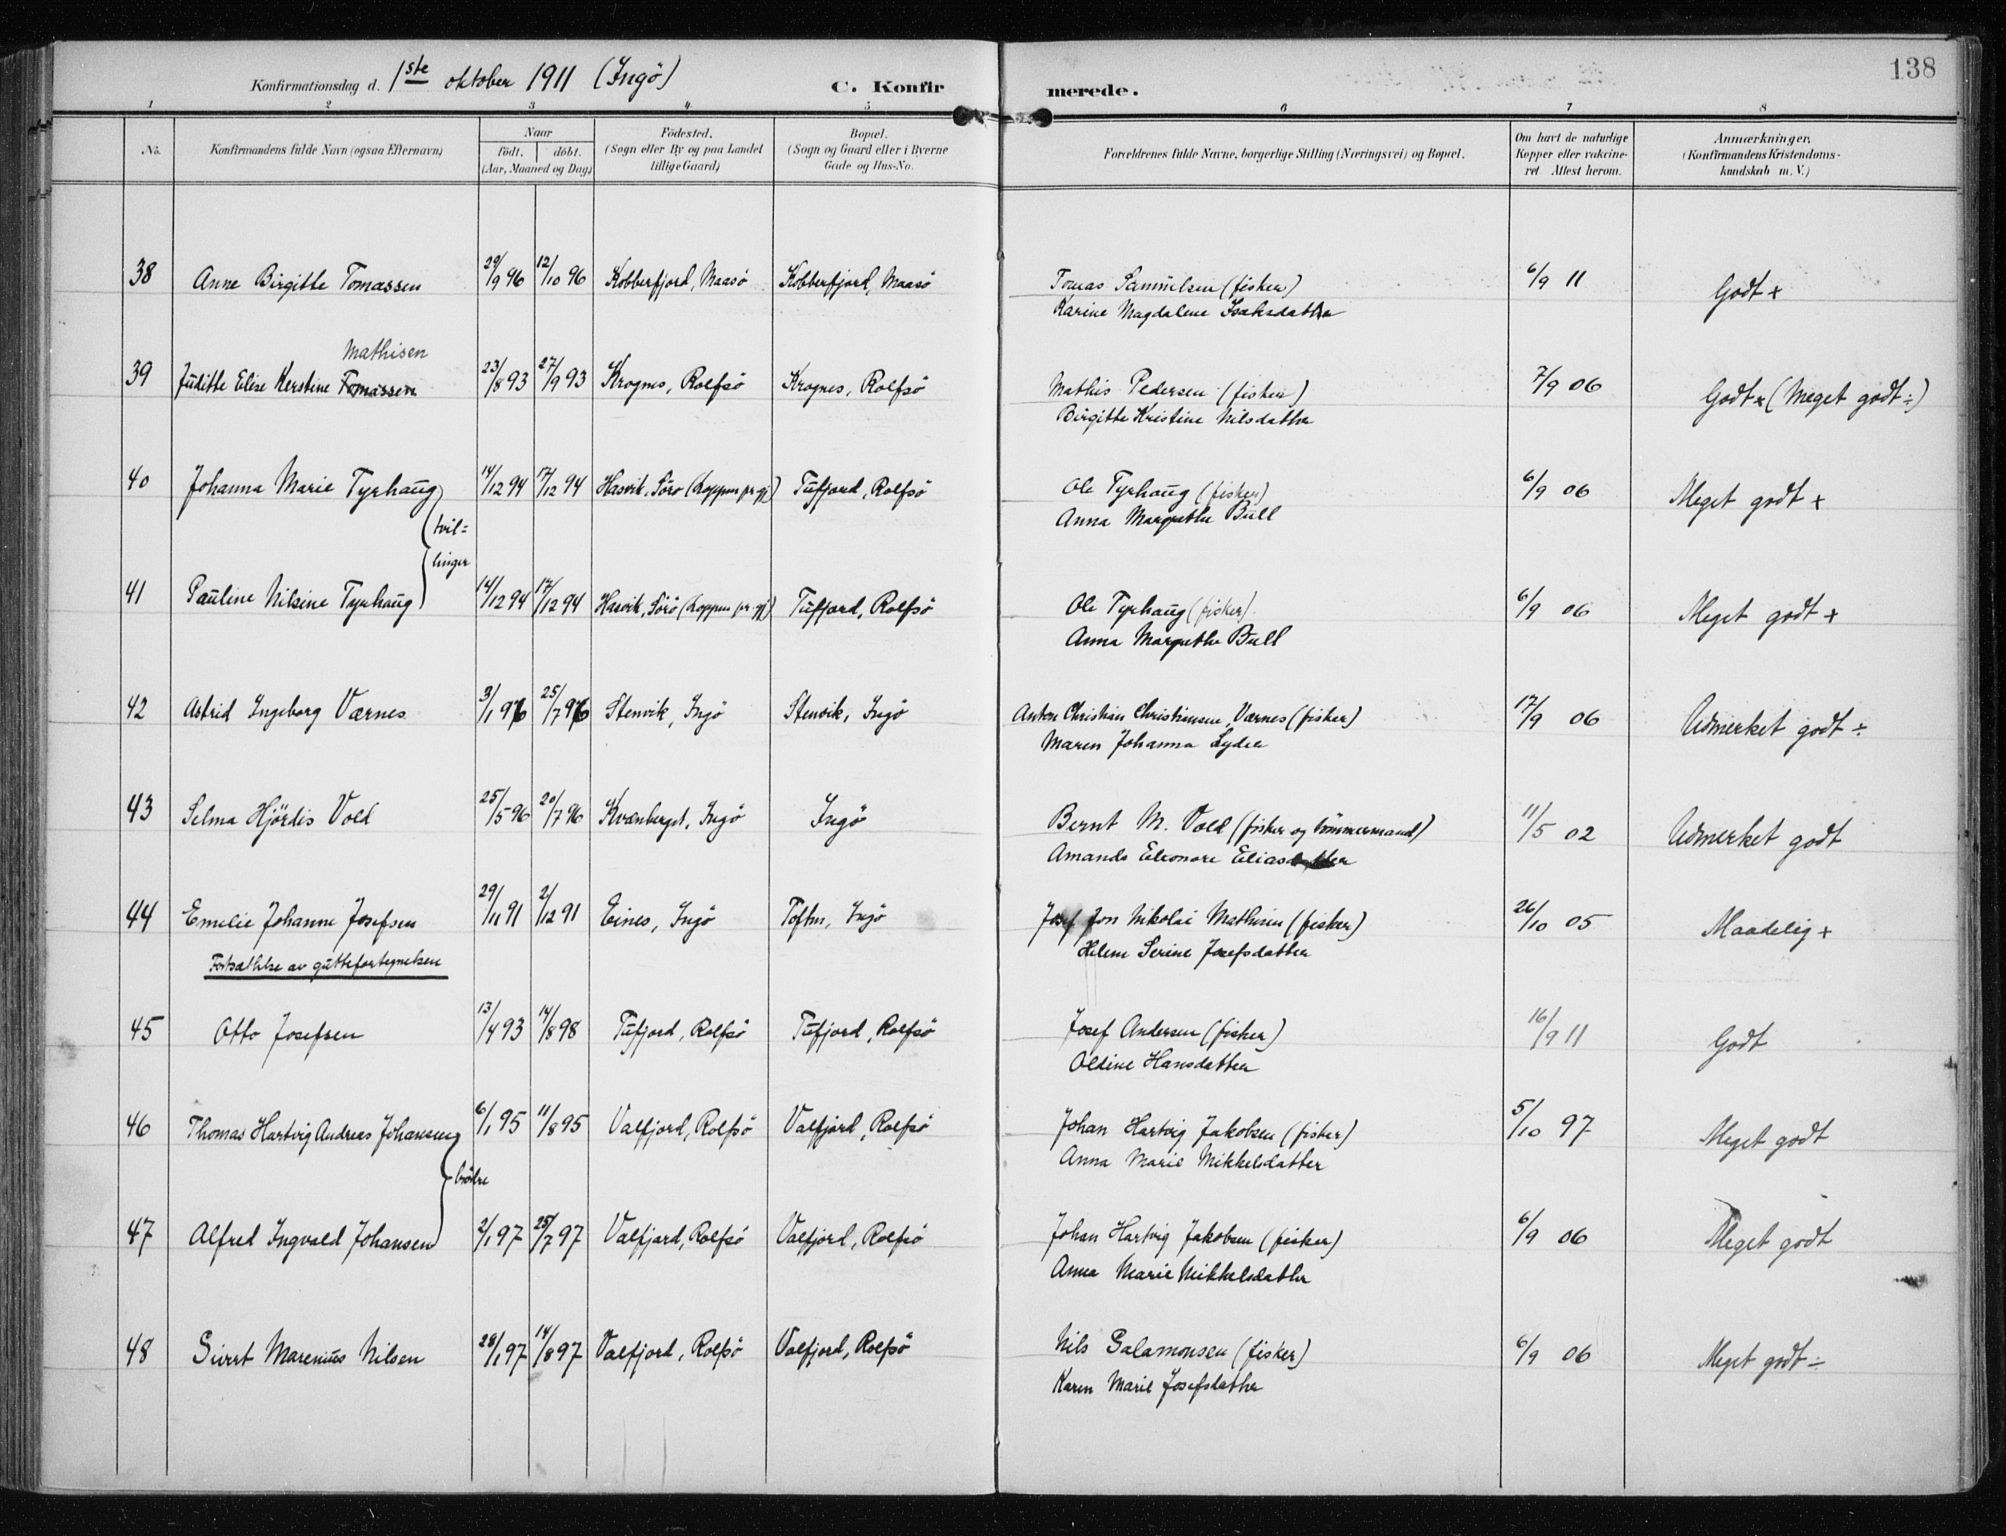 138
Konfirmationsdag d. 1ste oktober 1911 (Ingö) C. Konfirmerede.
1 2 3 4 5 6 7 8
No. Konfirmandens fulde Navn (ogsaa Efternavn) Naar födt. döbt. (Aar, Maaned og Dag) Födested. (Sogn eller By og paa Landet tillige Gaard) Bopæl. (Sogn og Gaard eller i Byerne Gade og Hus-No. Forældrenes fulde Navne, borgerlige Stilling (Næringsvei) og Bopæl. Om havt de naturlige Kopper eller vakcineret. Attest herom. Anmærkninger. (Konfirmandens Kristendomskundskab m. V.)
38 Anne Birgitte Tomassen 29/9 96 12/10 96 Kobberfjord, Maasö Kobberfjord, Maasö Tomas Samuelsen (fisker) 6/9 11 Godt +
Karine Magdalene Isaksdatter
Mathisen
39 Juditte Elise Kerstine Tomassen 23/8 93 27/9 93 Krognes, Rolfsö Krognes, Rolfsö Mathis Pedersen (fisker) 7/9 06 Godt + (Meget godt ÷)
Birgitte Kristine Nilsdatter
40 Johanna Marie Tyrhaug 14/12 94 17/12 94 Hasvik, Sörö (Loppen pr.gj) Tufjord, Rolfsö Ole Tyrhaug (fisker) 6/9 06 Meget godt +
Anna Margrethe Bull
tvil=
linger
41 Pauline Nilsine Tyrhaug 14/12 94 17/12 94 Hasvik, Sörö (Loppen pr.gj) Tufjord, Rolfsö Ole Tyrhaug (fisker) 6/9 06 Meget godt +
Anna Margrethe Bull
42 Astrid Ingeborg Værnes 3/1 96 25/7 96 Stenvik, Ingö Stenvik, Ingö Anton Christian Christiansen Værnes (fisker) 17/9 06 Udmerket godt ÷
Maren Johanna Lydia
43 Selma Hjördis Vold 25/5 96 20/7 96 Kvænberget, Ingö Ingö Bernt M. Vold (fisker og tömmermand) 11/5 02 Udmerket godt
Amanda Eleonore Eliasdatter
44 Emelie Johanne Josefsen 29/11 91 2/12 91 Eines, Ingö Toften, Ingö Josef Jon Nikolai Mathisen (fisker) 26/10 05 Maadelig +
Helene Serine Josefsdatter
Fortsættelse av guttefortegnelsen
45 Otto Josefsen 13/4 93 14/8 98 Tufjord, Rolfsö Tufjord, Rolfsö Josef Andersen (fisker) 16/9 11 Godt
Oldine Hansdatter
46 Thomas Hartvig Andreas Johansen 6/1 95 11/8 95 Valfjord, Rolfsö Valfjord, Rolfsö Johan Hartvig Jakobsen (fisker) 5/10 97 Meget godt
Anna Marie Mikkelsdatter
brödre
47 Alfred Ingvald Johansen 2/1 97 25/7 97 Valfjord, Rolfsö Valfjord, Rolfsö Johan Hartvig Jakobsen (fisker) 6/9 06 Meget godt
Anna Marie Mikkelsdatter
48 Sivert Marenius Nilsen 28/1 97 14/8 97 Valfjord, Rolfsö Valfjord, Rolfsö Nils Salamonsen (fisker) 6/9 06 Meget godt ÷
Karen Marie Josefsdatter